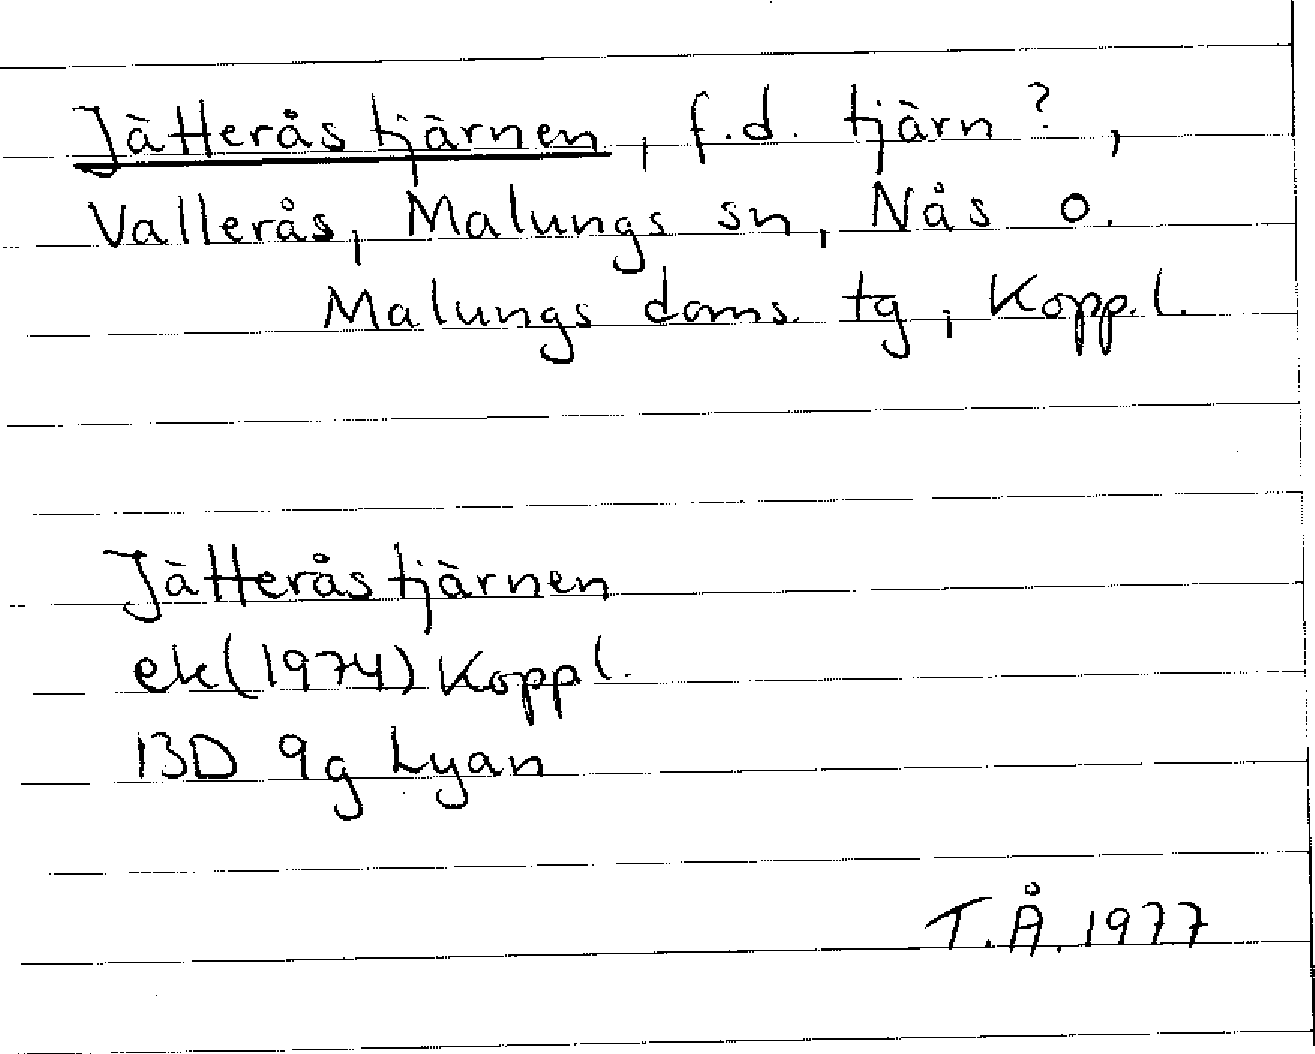 Jätterås tjärnen, f.d. tjärn?,
Vallerås, Malungs sn, Nås o.
Malungs doms. tg, Kopp. l.
Jätterås tjärnen
ek (1974) Kopp l.
13D 9g Lyan
T.Å. 1977